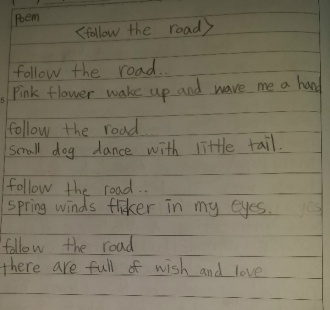 Poem
<follow the road>
follow the road..
Pink flower wake up and wave me a hand
follow the road
small dog dance with little tail.
follow the road..
spring winds flicker in my eyes.
follow the road
there are full of wish and love